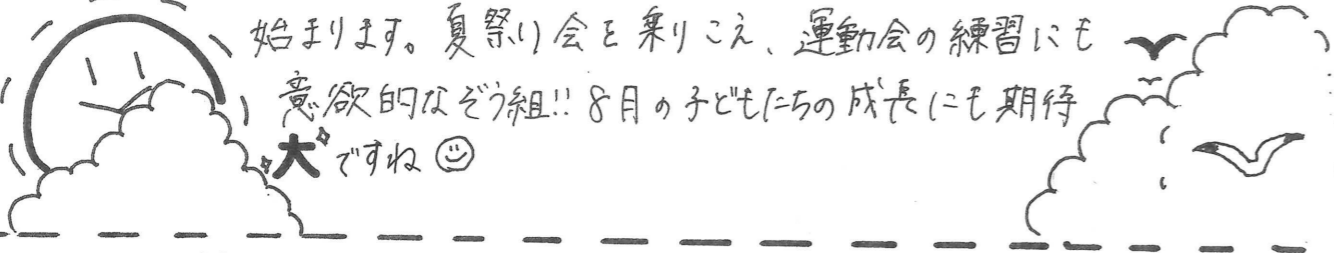 始まります。夏祭り会を乗りこえ、運動会の練習にも
意欲的なぞう組!! 8月の子どもたちの成長にも期待
大ですね